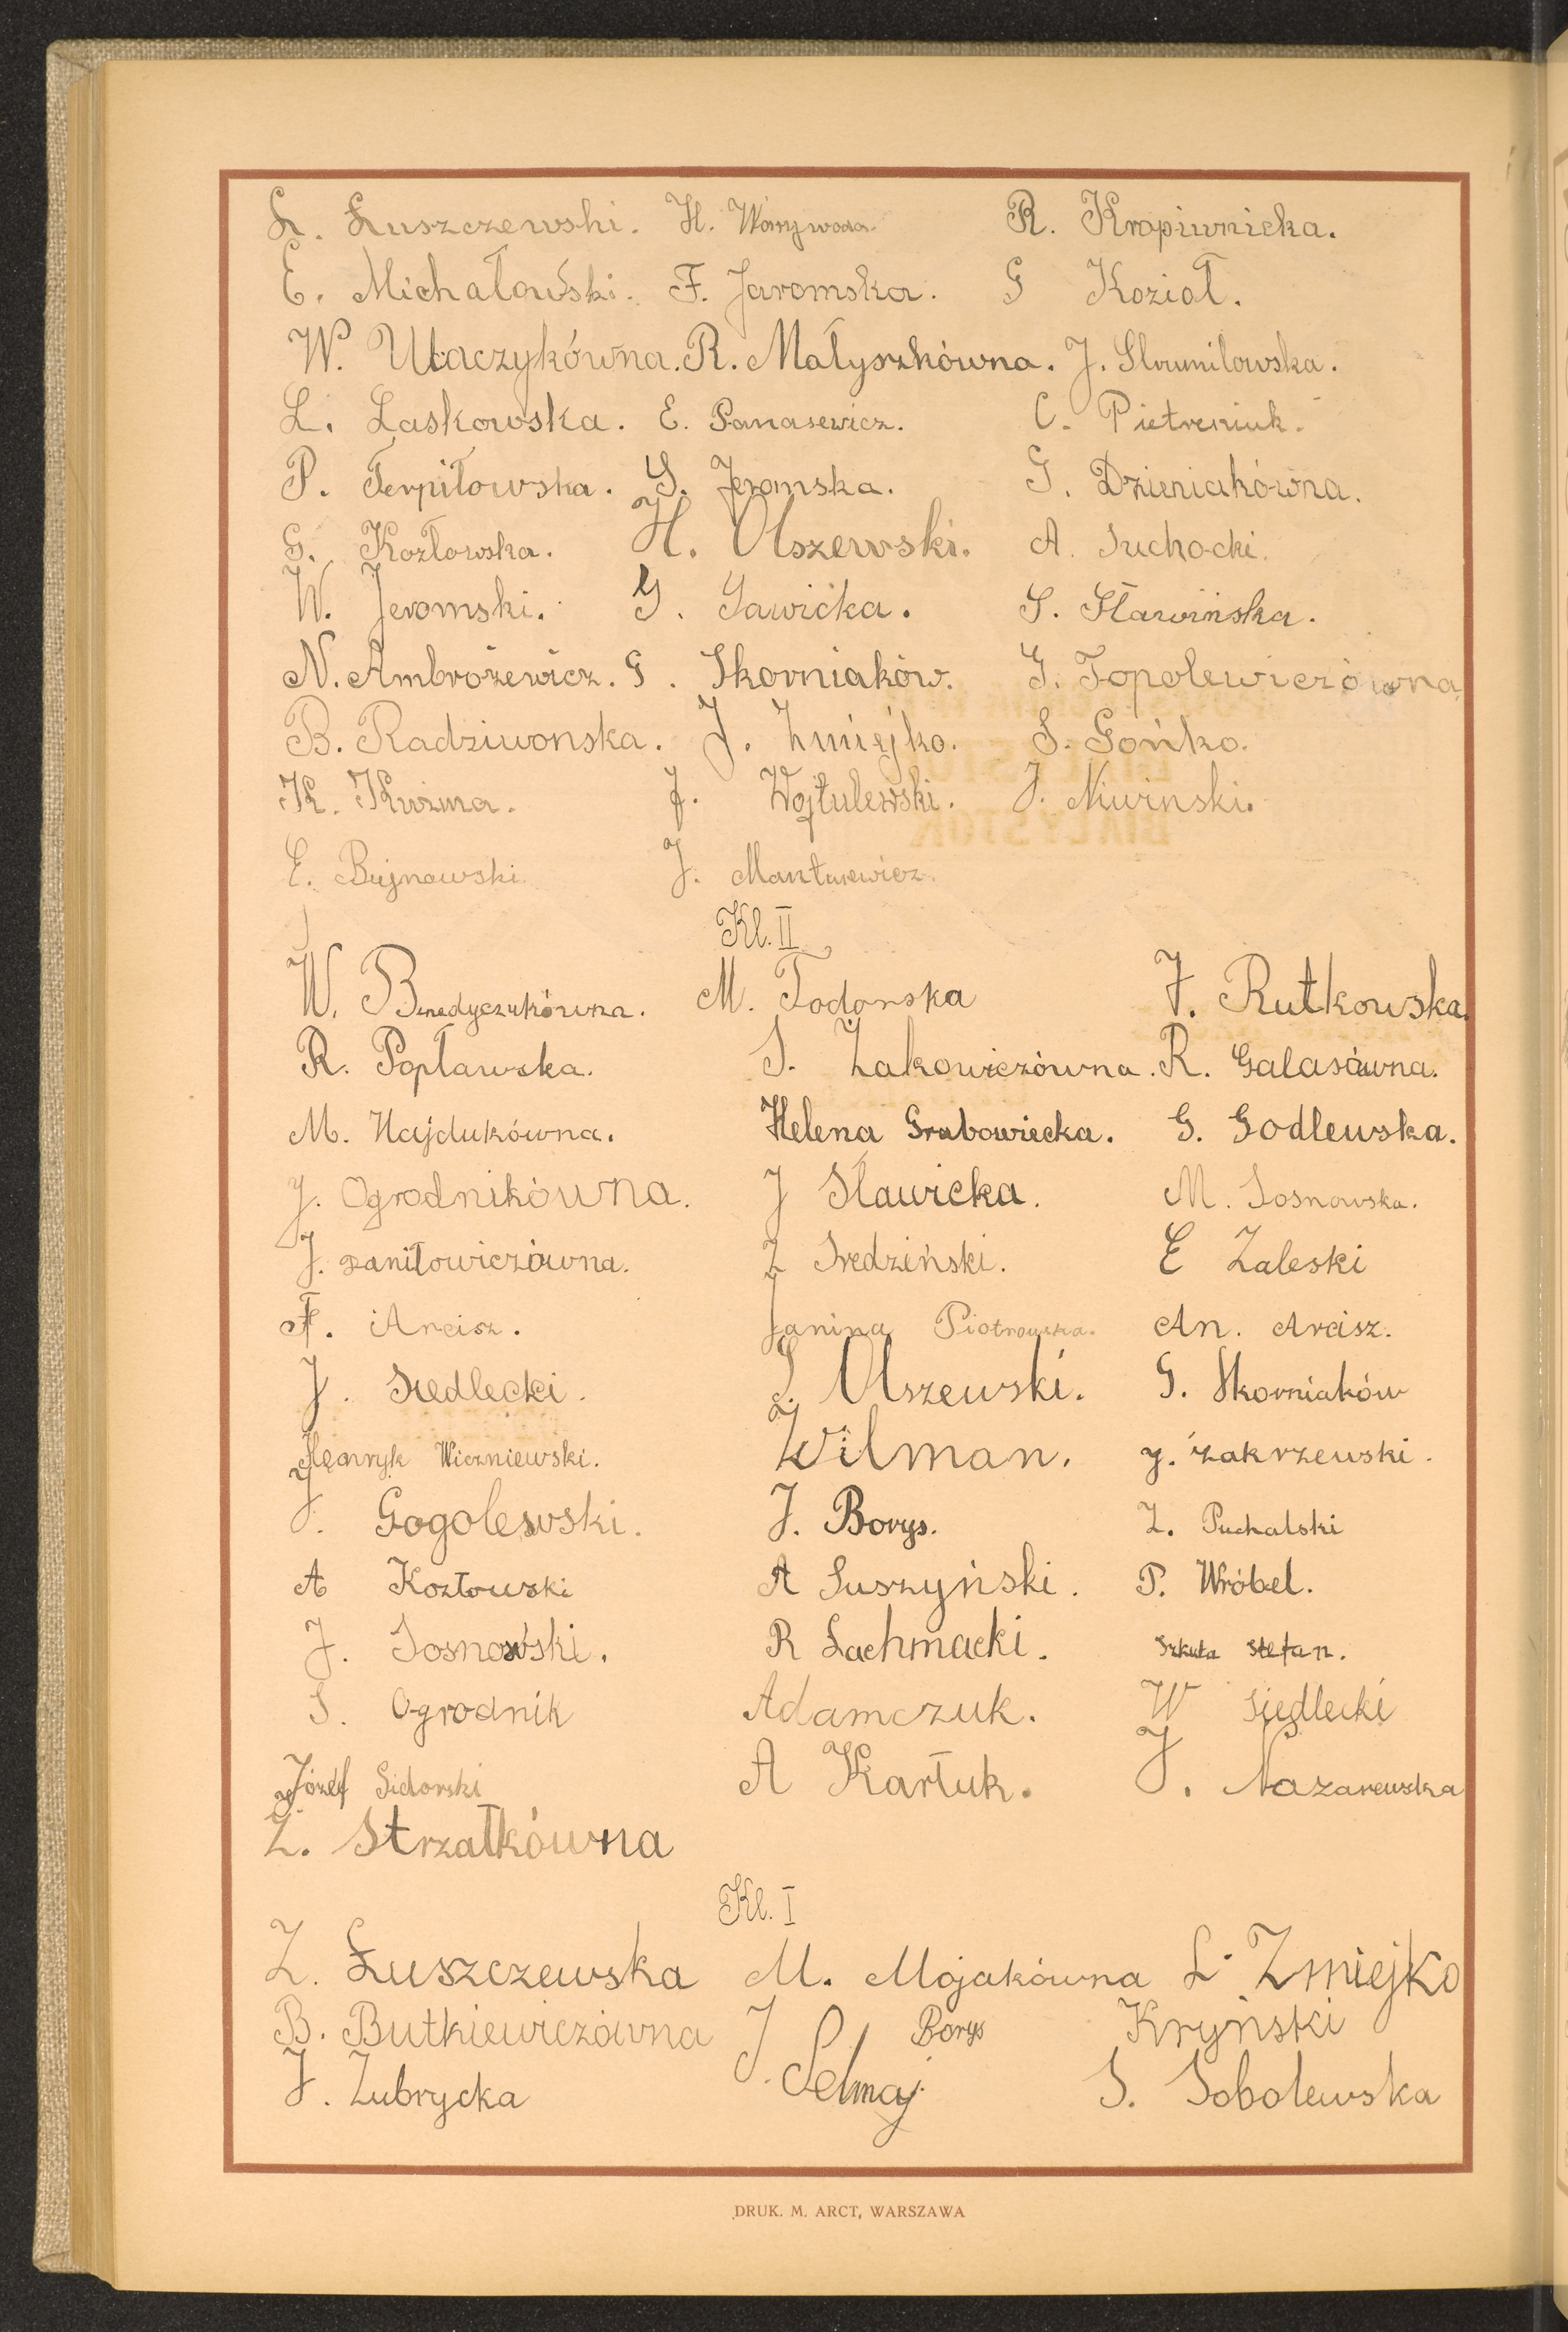 Ł. Łuszczewski. H. Worywoda. R. Kropiwnicka.
E. Michałowski. F. Jaromska. G Kozioł.
W. Utaczykówna. R. Małyszkówna. J. Słomilowska.
L. Laskowska. E. Panasewicz. C. Pietreniuk.
P. Terpiłowska. G. Jeromska. G. Dzieniakówna.
G. Kozłowska. H. Olszewski. A. Suchocki.
W. Jeromski. G. Sawicka. S. Sławińska.
N. Ambrożewicz. G. Skorniaków. G. Topolewiczówna
B. Radziwonska. J. Żmiejko. S. Sońko.
K. Kuzma. J. Wojtulewski. J. Niwinski.
E. Bujnowski. J. Mantusewicz.
Kl. II
W. Benedyczukówna. M. Todorska J. Rutkowska.
R. Popławska. S. Żakowiczówna. R. Galasówna.
M. Hajdukówna. Helena Grabowiecka. G. Godlewska.
J. Ogrodnikówna. J Sławicka. M. Sosnowska.
J. Daniłowiczówna. Z Sredziński. E Zaleski
F. Arcisz. Janina Piotrowska. An. Arcisz.
J. Siedlecki. S. Olszewski. G. Skorniaków
Henryk Wiczniewski. Wilman. J. Zakrzewski.
J. Gogolewski. J. Borys. Z. Puchalski
A Kozłowski A Suszyński. P. Wróbel.
J. Sosnowski. R Lachmacki. Szkuta Stefan.
S. Ogrodnik Adamczuk. W Siedlecki
Józef Sidorski A Kartuk. J. Nazarewska
Z. Strzałkówna
Kl. I
Z. Łuszczewska M. Mojakówna L. Zmiejko
B. Butkiewiczówna J. Borys Kryński
J. Zubrycka Selmaj S. Sobolewska
DRUK. M. ARCT, WARSZAWA